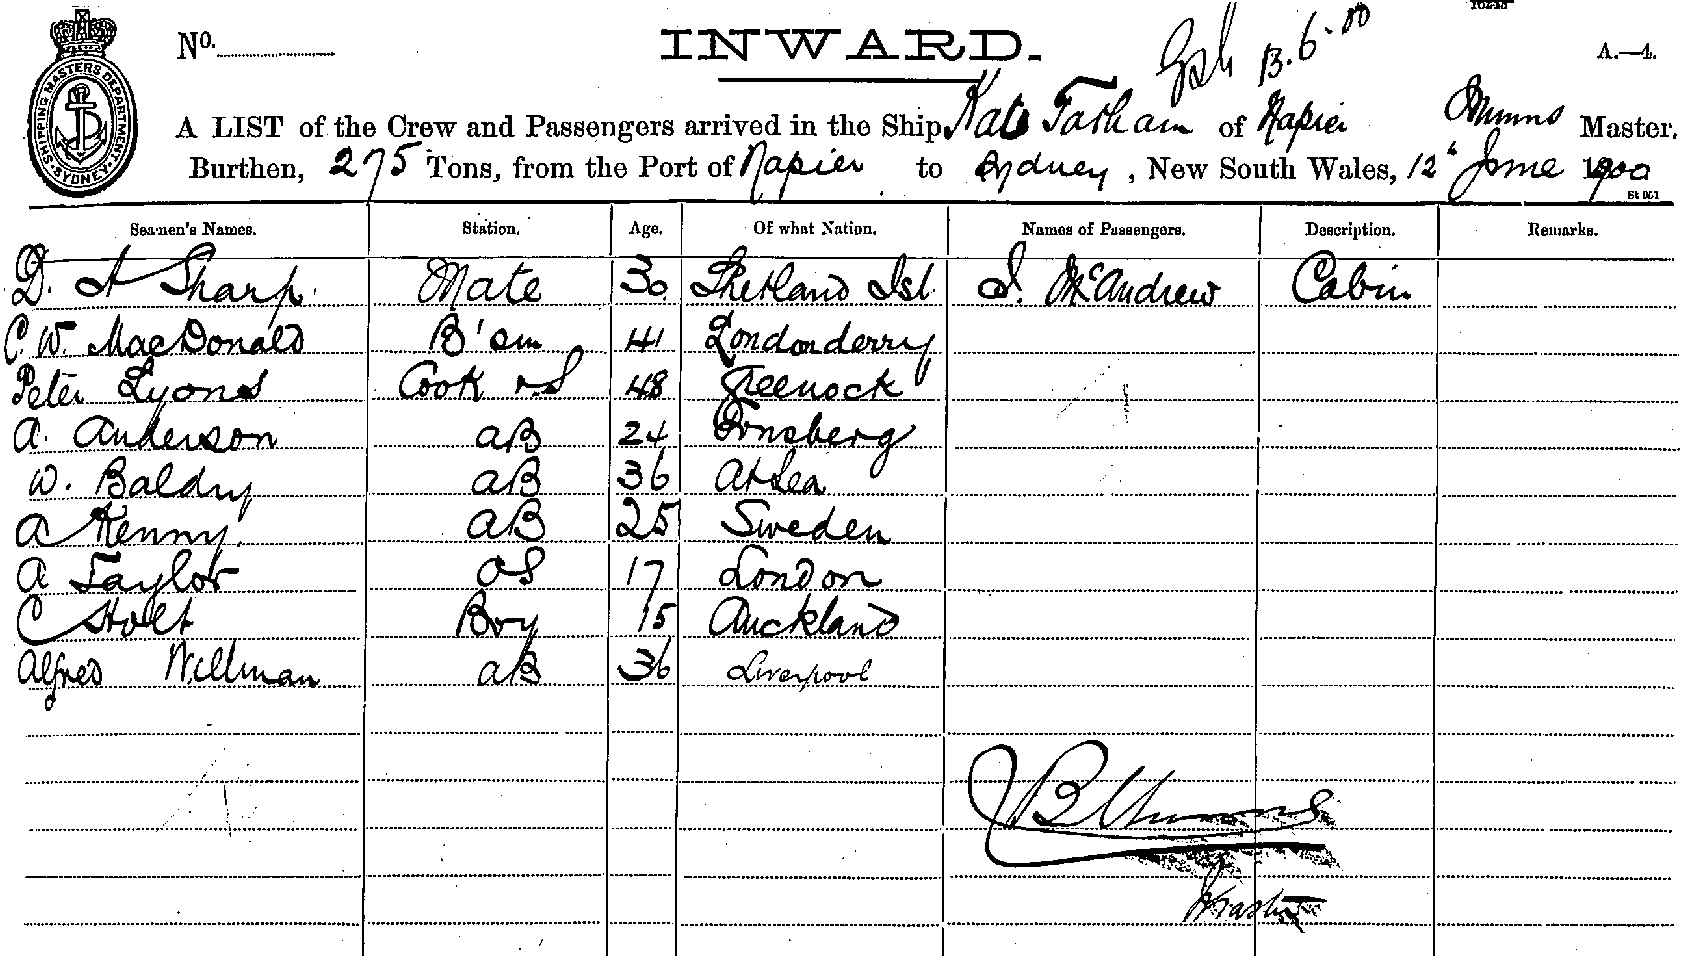 SHIPPING MASTERS DEPARTMENT SYDNEY
No. INWARD. 13.6.00 A.—4.
A LIST of the Crew and Passengers arrived in the Ship Kate Tatham of Napier Munns Master.
Burthen, 275 Tons, from the Port of Napier to Sydney, New South Wales, 12" June 1900
Seamen's Names. Station. Age. Of what Nation. Names of Passengers. Description. Remarks.
D. A Sharp. Mate 30 Shetland Isl. J. McAndrew Cabin
C. W. MacDonald B'sun 41 Londonderry
Peter Lyons Cook & S 48 Greenock
A. Anderson AB 24 Tonsberg
W. Baldry AB 36 At Sea
A Kenny. AB 25 Sweden
A Taylor OS 17 London
C Holt Boy 15 Auckland
Alfred Willman AB 36 Liverpool
J B Munns
Master